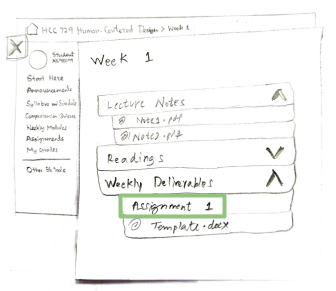 HCC 729 Human-Centered Design > Week 1
Student
Week 1
Start Here
Announcements
Syllabus and Schedule
Comprehension Quizzes
Weekly Modules
Assignments
My Grades
Other
Lecture Notes
Note1.pdf
Note2.pdf
Readings
Weekly Deliverables
Assignment 1
Template.docx